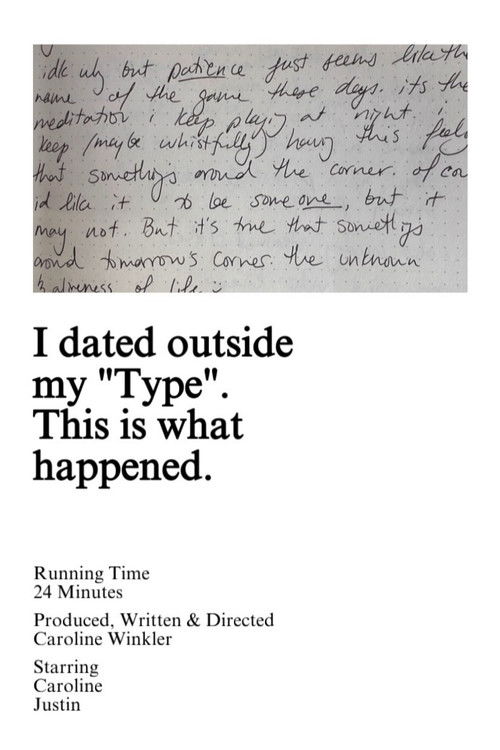 idk why but patience just seems like th
name of the game these days. its the
meditation i keep playing at night. i
keep (maybe whistfully) having this feel
that something's around the corner. of co
id like it to be someone, but it
may not. But it's true that something's
around tomorrow's corner. the unknown
of life :)
I dated outside
my "Type".
This is what
happened.
Running Time
24 Minutes
Produced, Written & Directed
Caroline Winkler
Starring
Caroline
Justin